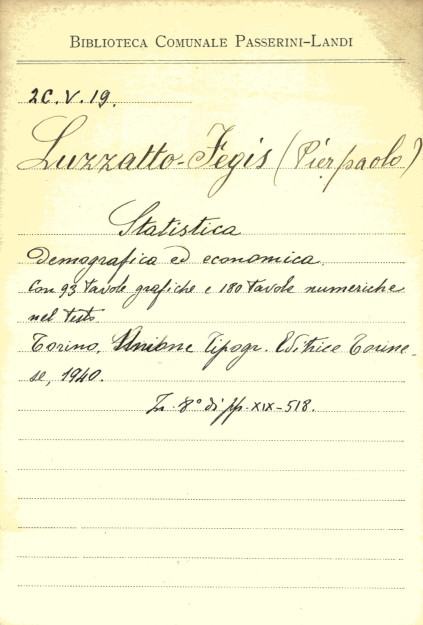 BIBLIOTECA COMUNALE PASSERINI-LANDI
2C.V.19.
Luzzatto-Fegis (Pierpaolo)
Statistica
Demografica ed economica.
Con 93 tavole grafiche e 180 tavole numeriche
nel testo
Torino, Unione Tipogr. Editrice Torine-
se, 1940.
In 8° di pp. XIX-518.